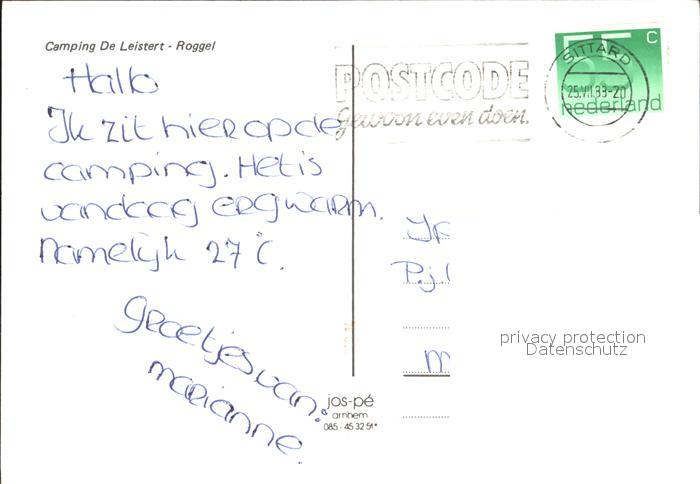 Camping De Leistert - Roggel
Hallo
Ik zit hier op de
camping. Het is
vandaag erg warm.
Namelijk 27 °C.
Groetjes van:
marianne.
POSTCODE
Gewoon even doen.
SITTARD
25.VII.83-20
55 C
nederland
P.j.
M
privacy protection
Datenschutz
jos-pé
arnhem
085 - 45 32 51*